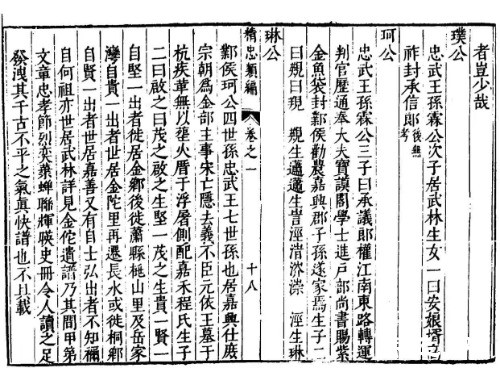 者豈少哉
璞公
忠武王孫霖公次子居武林生女一曰安娘
祚封承信郎後無考
珂公
忠武王孫霖公三子曰承議郎權江南東路轉運
判官歷通奉大夫寶謨閣學士進戶部尚書賜紫
金魚袋封鄴侯勸農嘉興郡子孫遂家焉生子二
曰覲曰現
精忠類編
卷之一
十八
琳公
鄴侯珂公四世孫忠武王七世孫也居嘉興仕度
宗朝為金部主事宋亡隱去義不臣元依王墓于
杭疾革無以塟火厝于浮屠側配嘉禾程氏生子
二曰啟之曰茂之啟之生堅一茂之生貴一賢一
自堅一出者徙居金鄉後徙蕭縣桃山里及岳家
灣自貴一出者世居金陀里再遷長水或徙桐鄉
自賢一出者世居嘉善又有自士弘出者不知禰
自何祖亦世居武林詳見金陀遺譜乃其間甲第
文章忠孝節烈奕葉蟬聯輝暎史冊令人讀之足
發洩其千古不平之氣真快譜也不具載